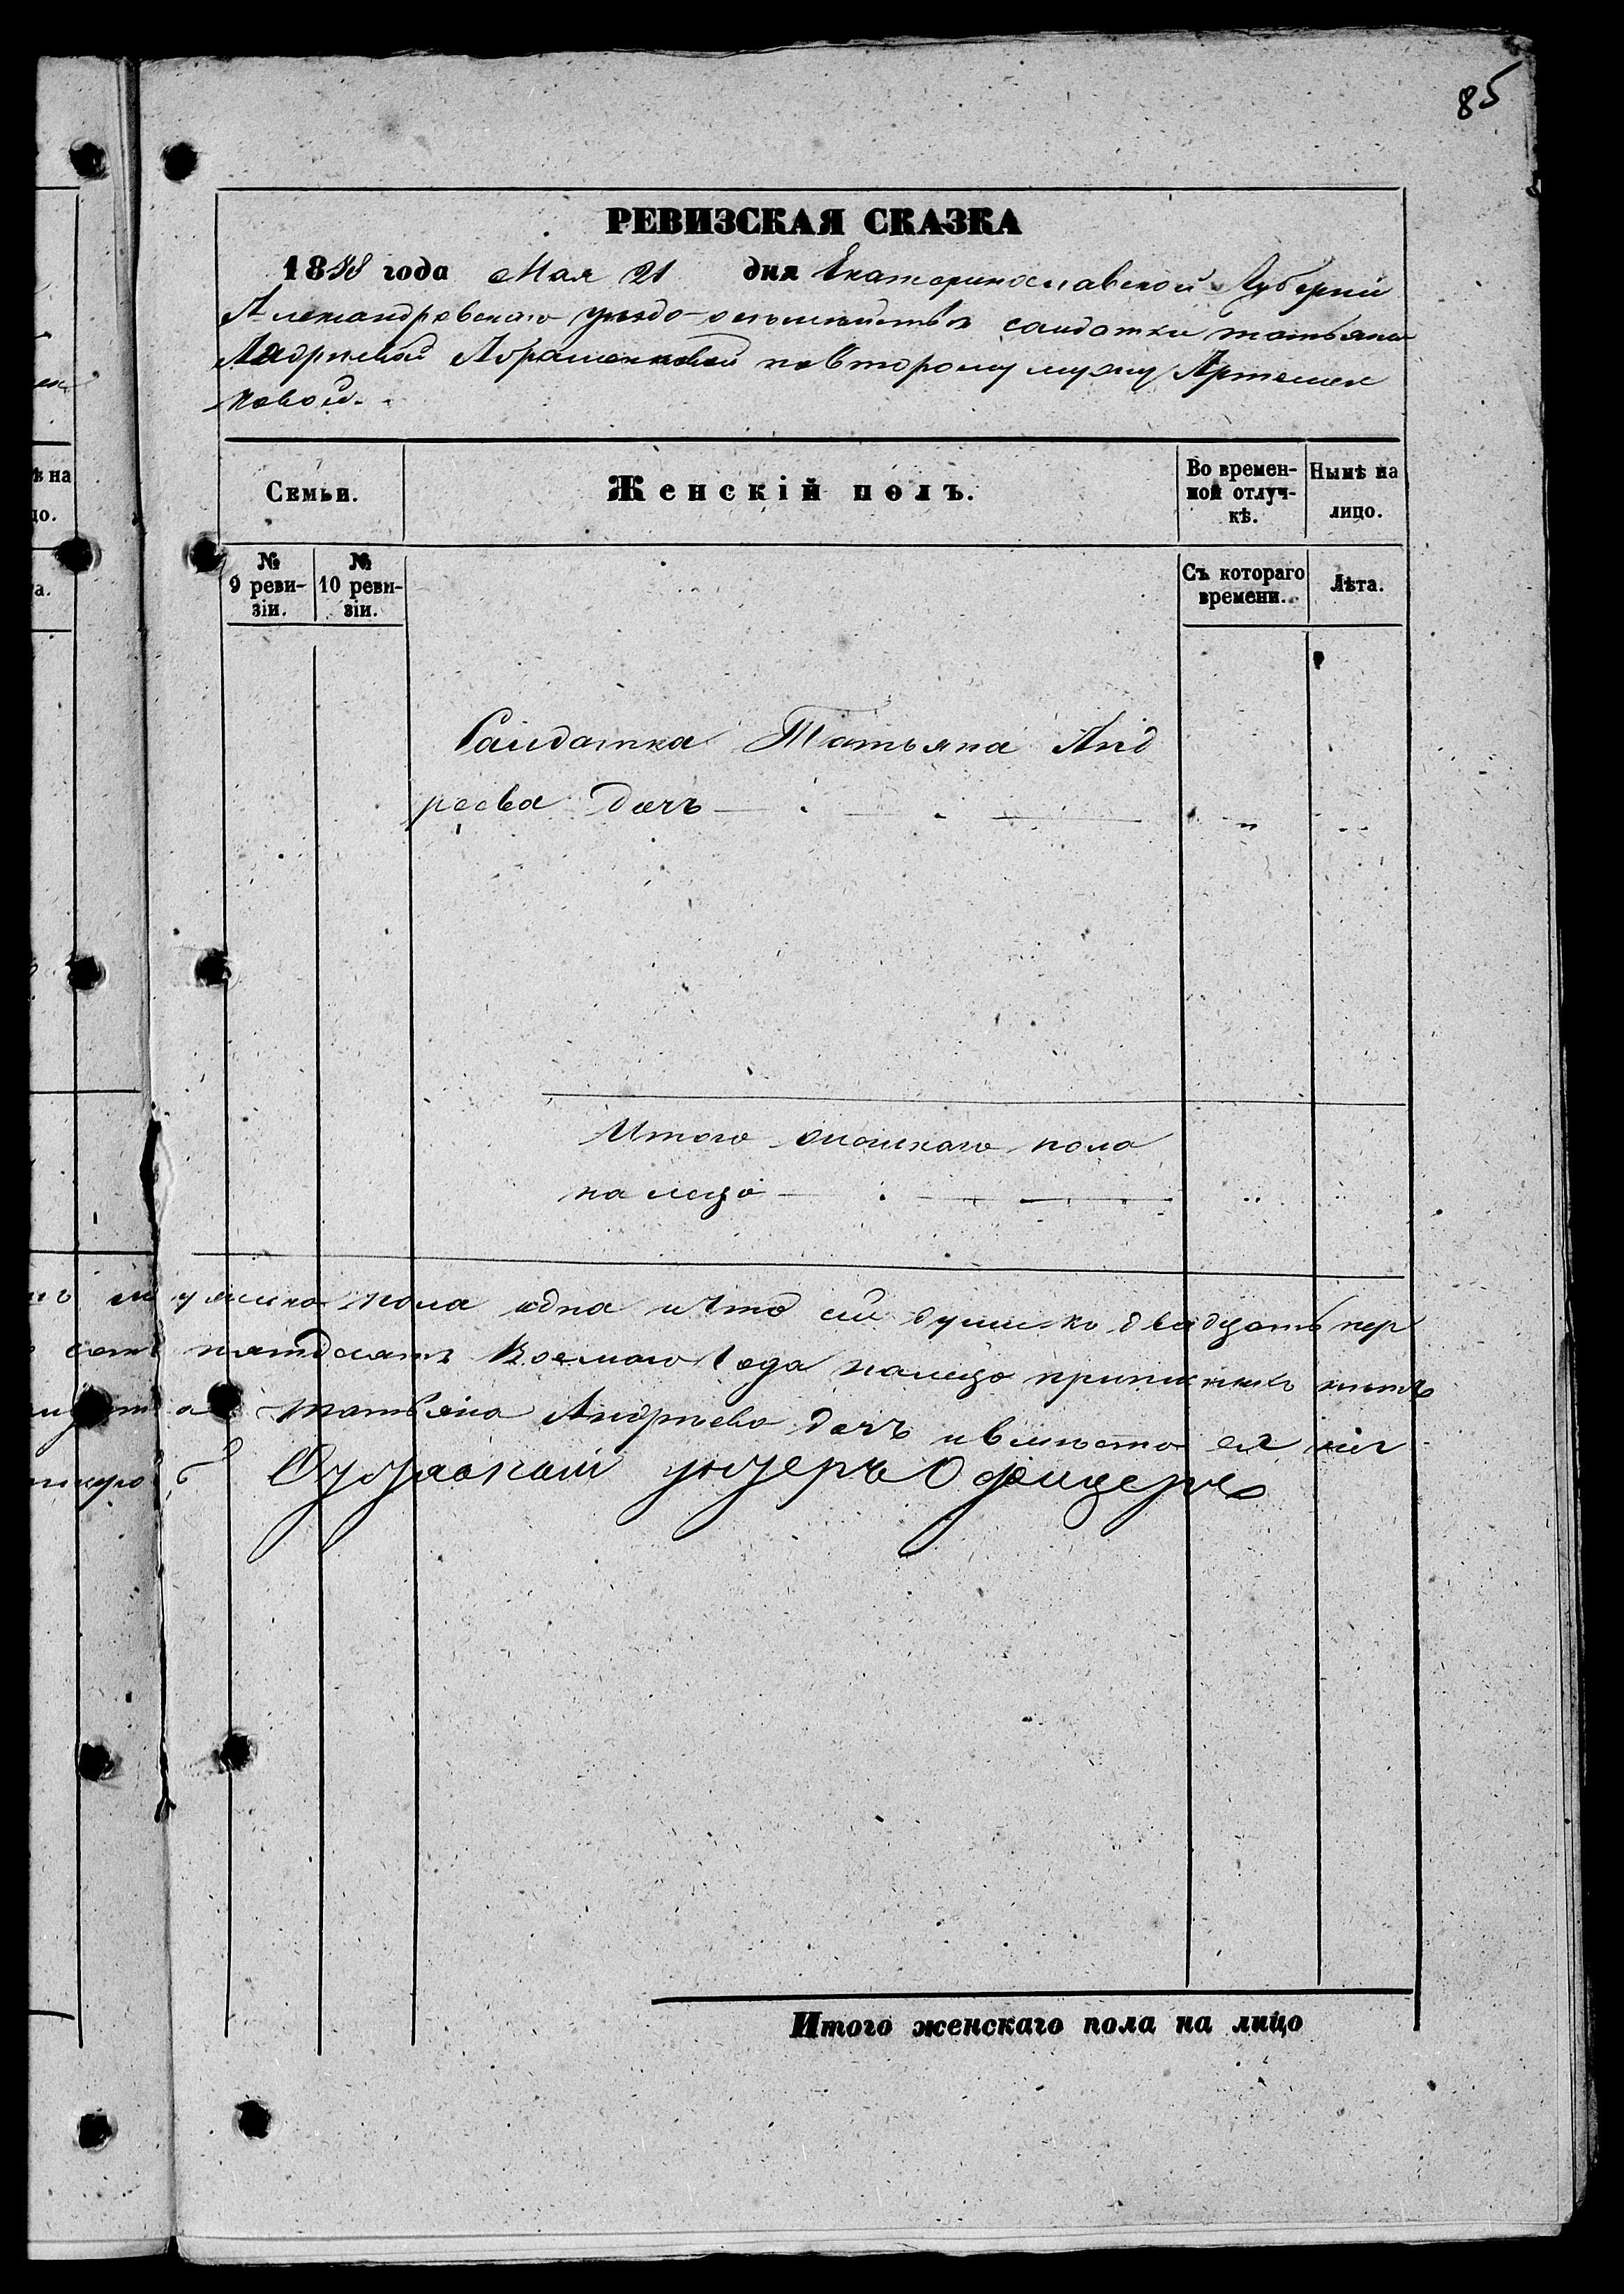 85
РЕВИЗСКАЯ СКАЗКА
1858 года Мая 21 дня Екатеринославской Губерніи
Александровскаго уѣзда о семействѣ салдатки татьяны
Андрѣевой Абраменковой повторому мужу Артемен
ковой.
Семьи.
Женскій полъ.
Во времен-
ной отлуч-
кѣ.
Нынѣ на
лицо.
№
9 реви-
зіи.
№
10 реви-
зіи.
Съ котораго
времени.
Лѣта.
Салдатка Татьяна Анд
реева дочь
Итого женскаго пола
на лицо
пола одна и что сіи души ко двадцать пер
пятдесятъ Восмаго года налицо
татьяна Андрѣева дочь ивмѣсто ея
унтеръ Офицеръ
Итого женскаго пола на лицо
ѣ на
цо.
а.